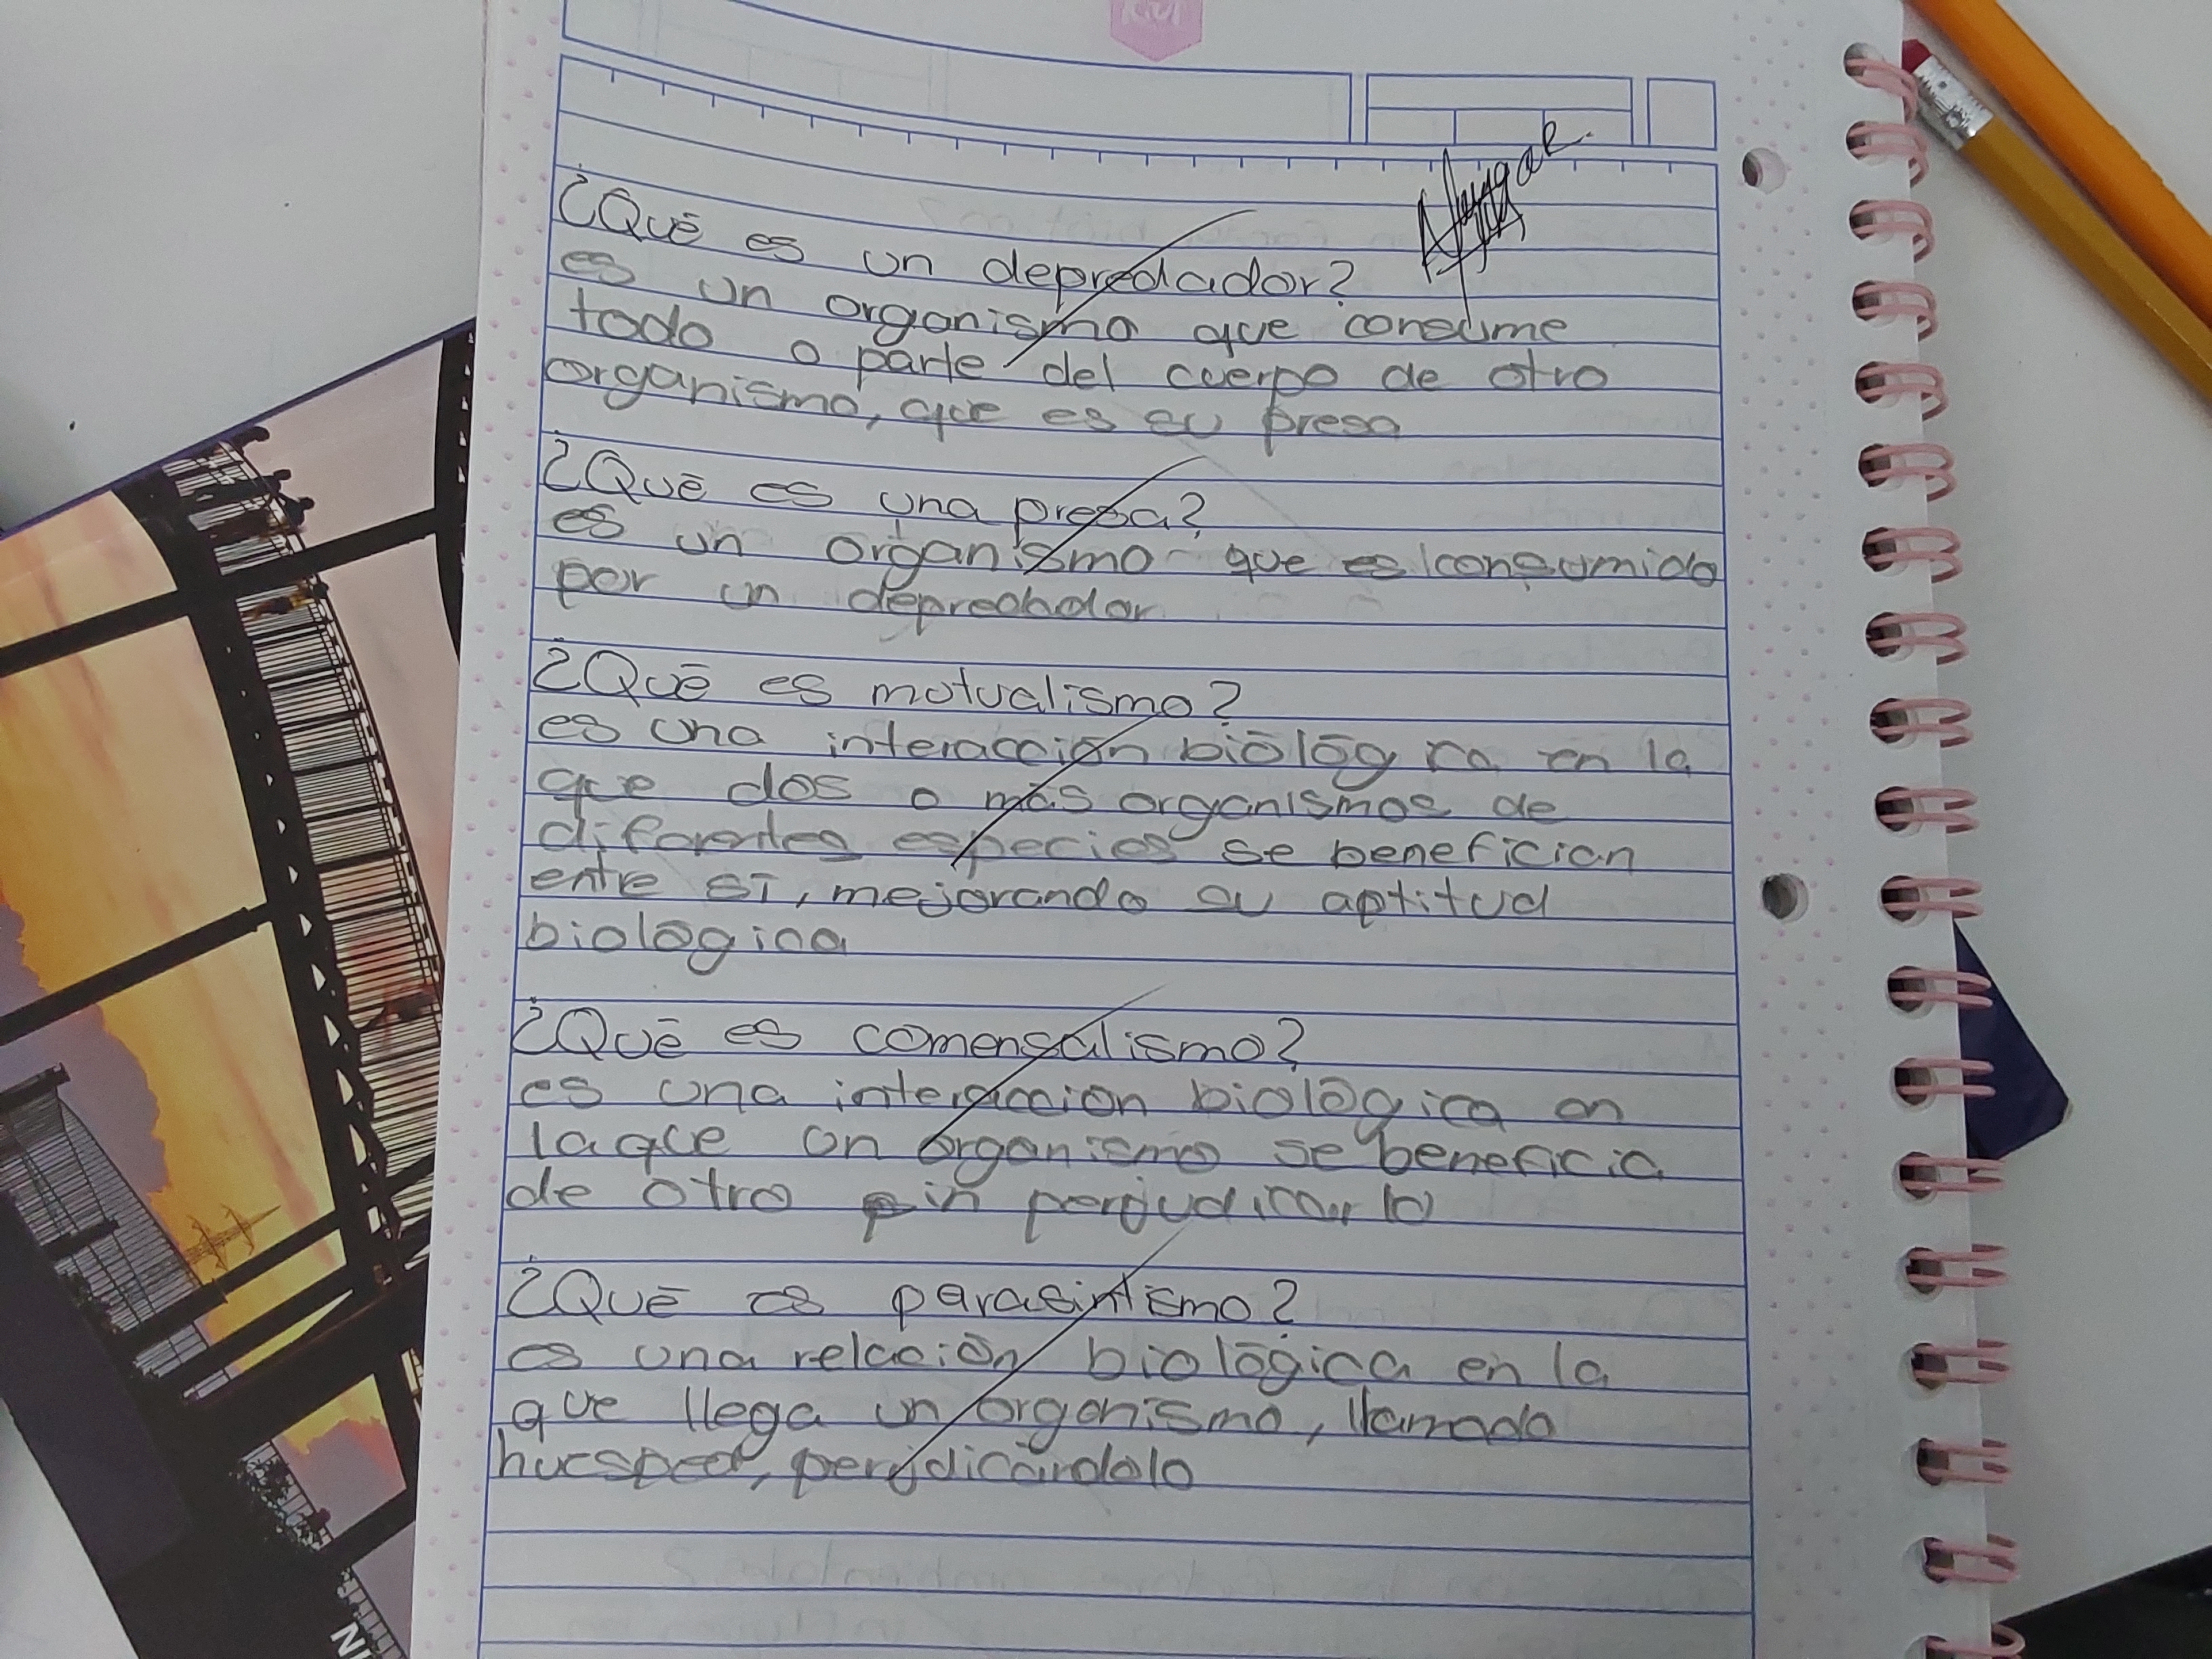 Kiut
¿Qué es un depredador?
es un organismo que consume
todo o parte del cuerpo de otro
organismo, que es su presa
¿Qué es una presa?
es un organismo que es consumido
por un depredador
¿Qué es mutualismo?
es una interacción biológica en la
que dos o más organismos de
diferentes especies se benefician
entre sí, mejorando su aptitud
biológica
¿Qué es comensalismo?
es una interaccion biológica en
la que un organismo se beneficia
de otro sin perjudicarlo
¿Qué es parasintismo?
es una relación biológica en la
que llega un organismo, llamado
huesped, perjdicándolo
NI